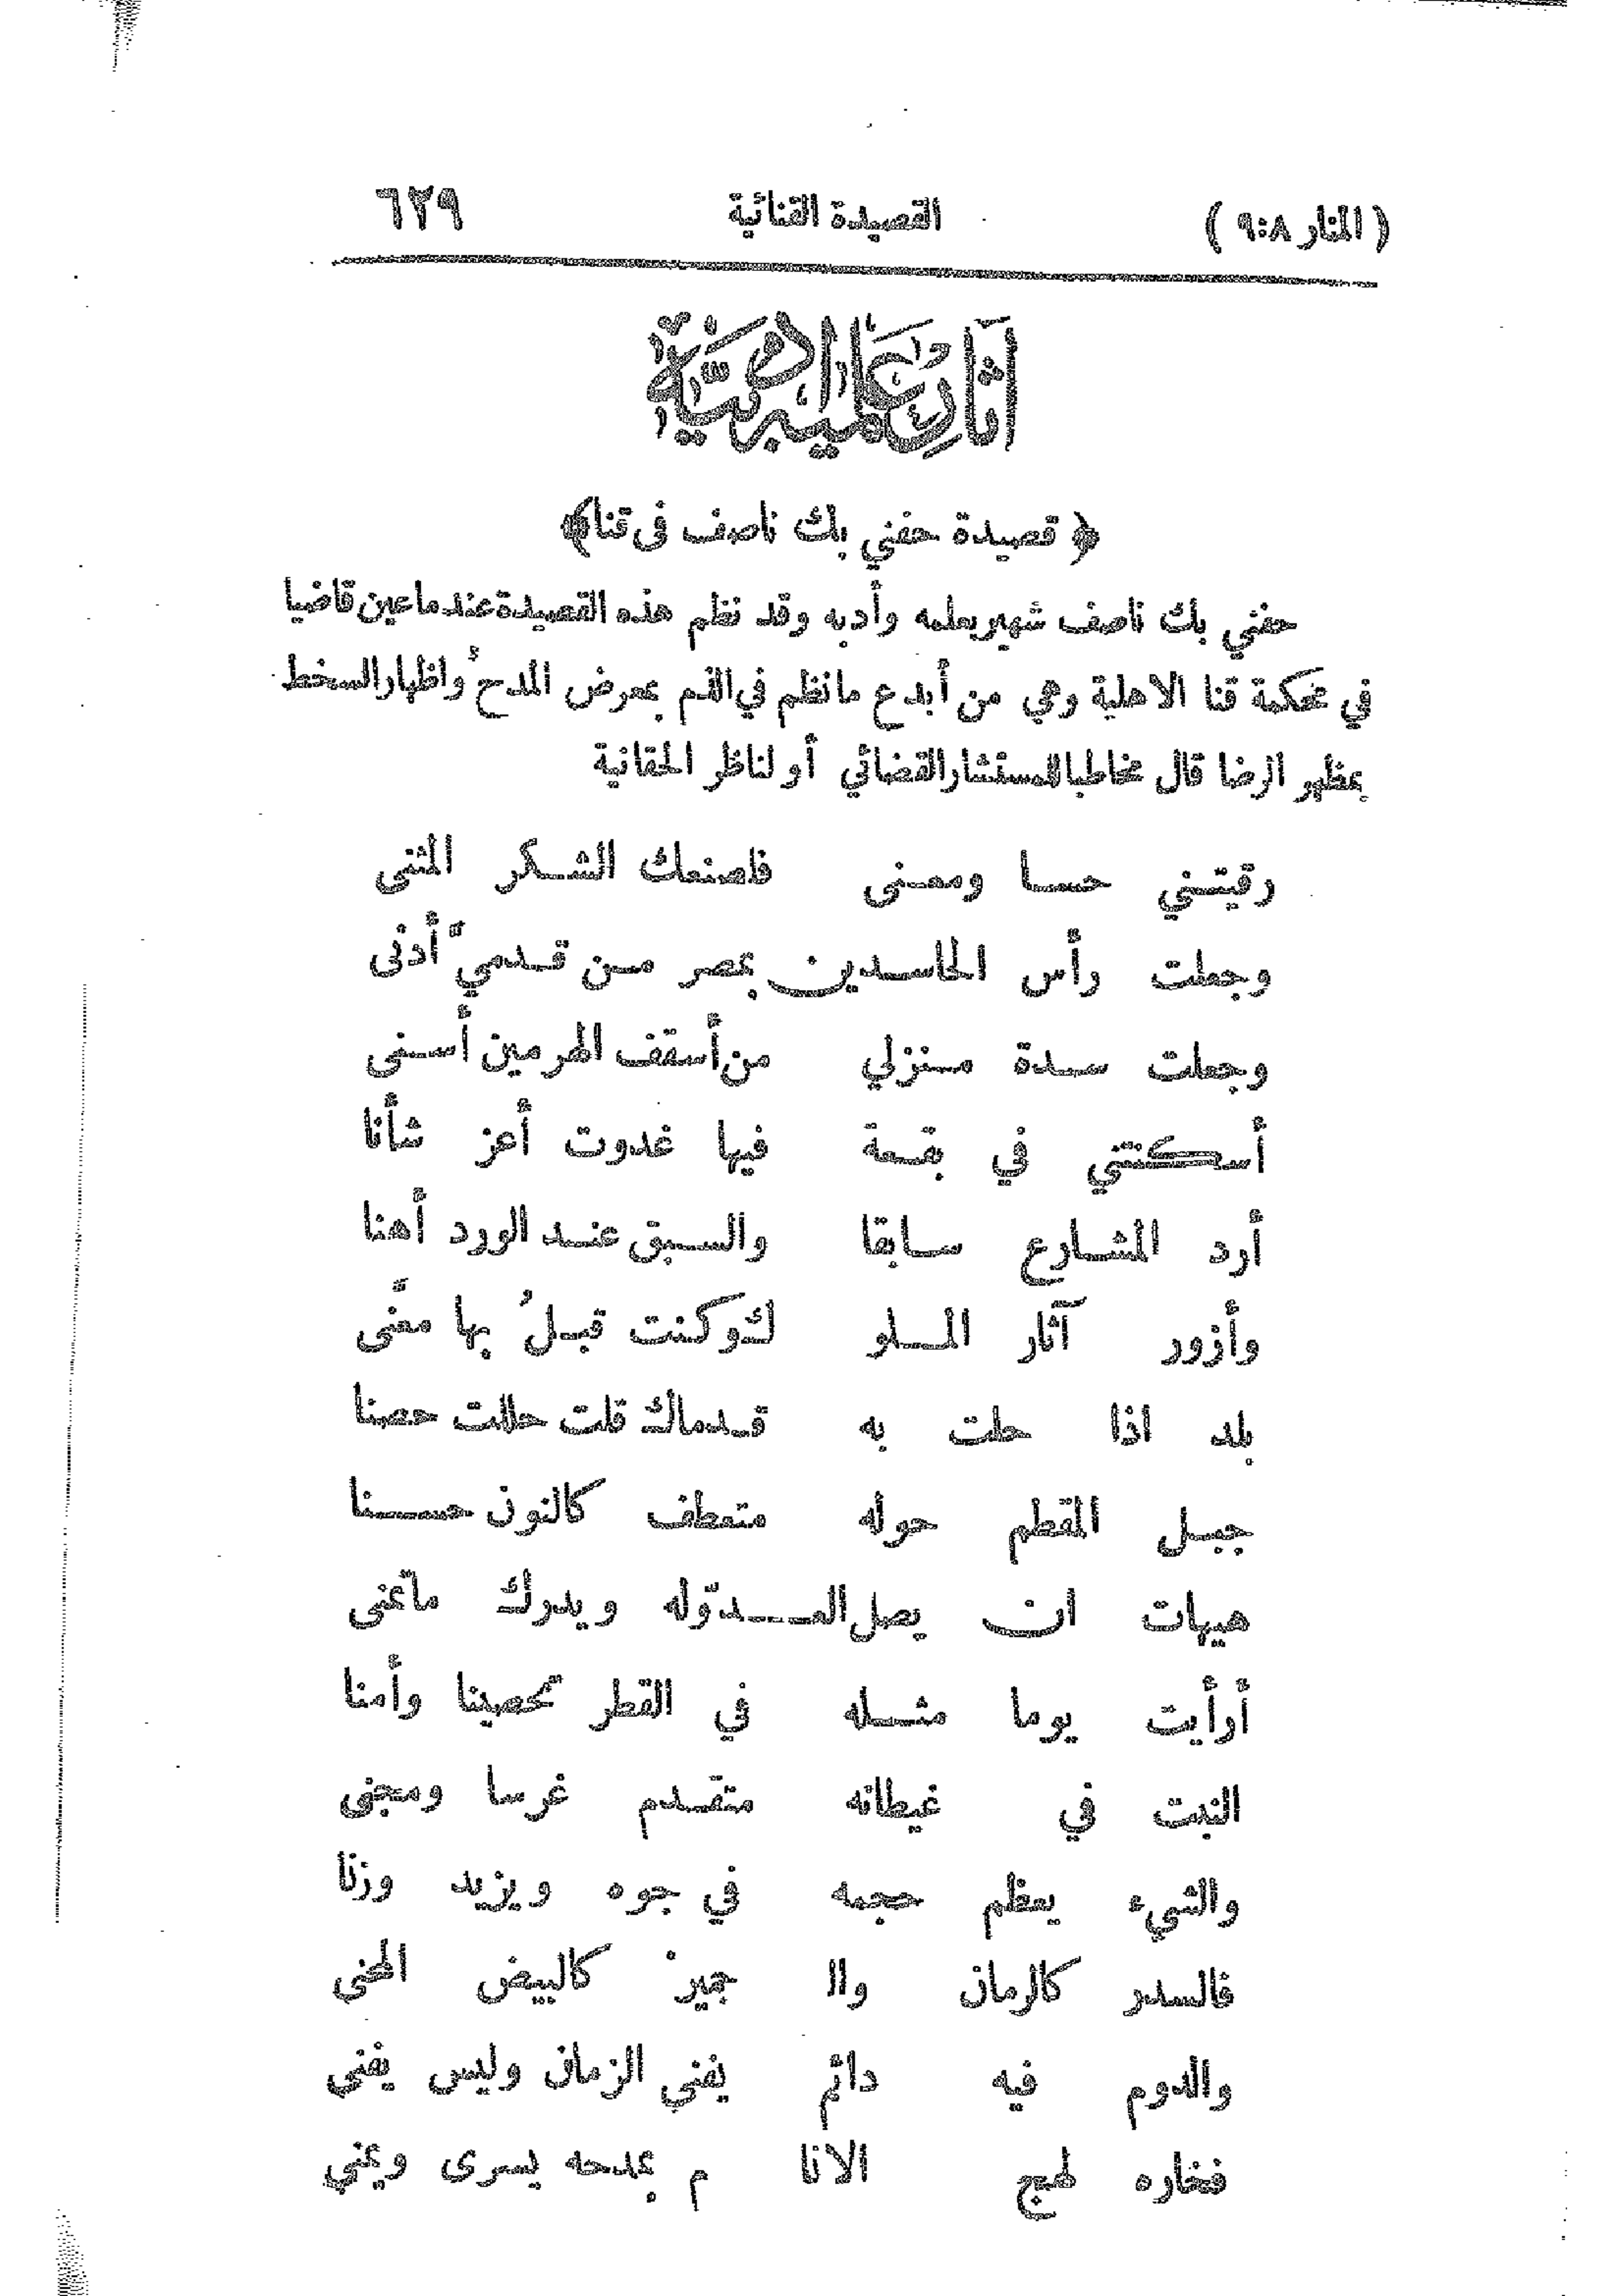 ( المنار ٩:٨ ) القصيدة القنائية ٦٢٩
آثار علمية أدبية
﴿ قصيدة حفني بك ناصف فى قنا ﴾
حفني بك ناصف شهير بعلمه وأدبه وقد نظم هذه القصيدة عند ما عين قاضيا
في محكمة قنا الاهلية وهي من أبدع ما نظم في الذم بمعرض المدح واظهار السخط
بمظهر الرضا قال مخاطبا للمستشار القضائي أو لناظر الحقانية
رقيتني حسا ومعنى فلصنعك الشكر المثنى
وجعلت رأس الحاسدين بمصر من قدميَّ أدنى
وجعلت سدة منزلي من أسقف الهرمين أسنى
أسكنتني في بقعة فيها غدوت أعز شأنا
أرد المشارع سابقا والسبق عند الورد أهنا
وأزور آثار الملو ك وكنت قبلُ بها معنَّى
بلد اذا حلت به قدماك قلت حللت حصنا
جبل المقطم حوله متعطف كالنون حسنا
هيهات ان يصل العدوّ له ويدرك ما تمنى
أرأيت يوما مثله في القطر تحصينا وأمنا
النبت في غيطانه متقدم غرسا ومجنى
والشيء يعظم حجمه في جوه ويزيد وزنا
فالسدر كالرمان وال جميز كالبيض المحنى
والدوم فيه دائم يفني الزمان وليس يفنى
فخاره لهج الانا م بمدحه يسرى ويمني